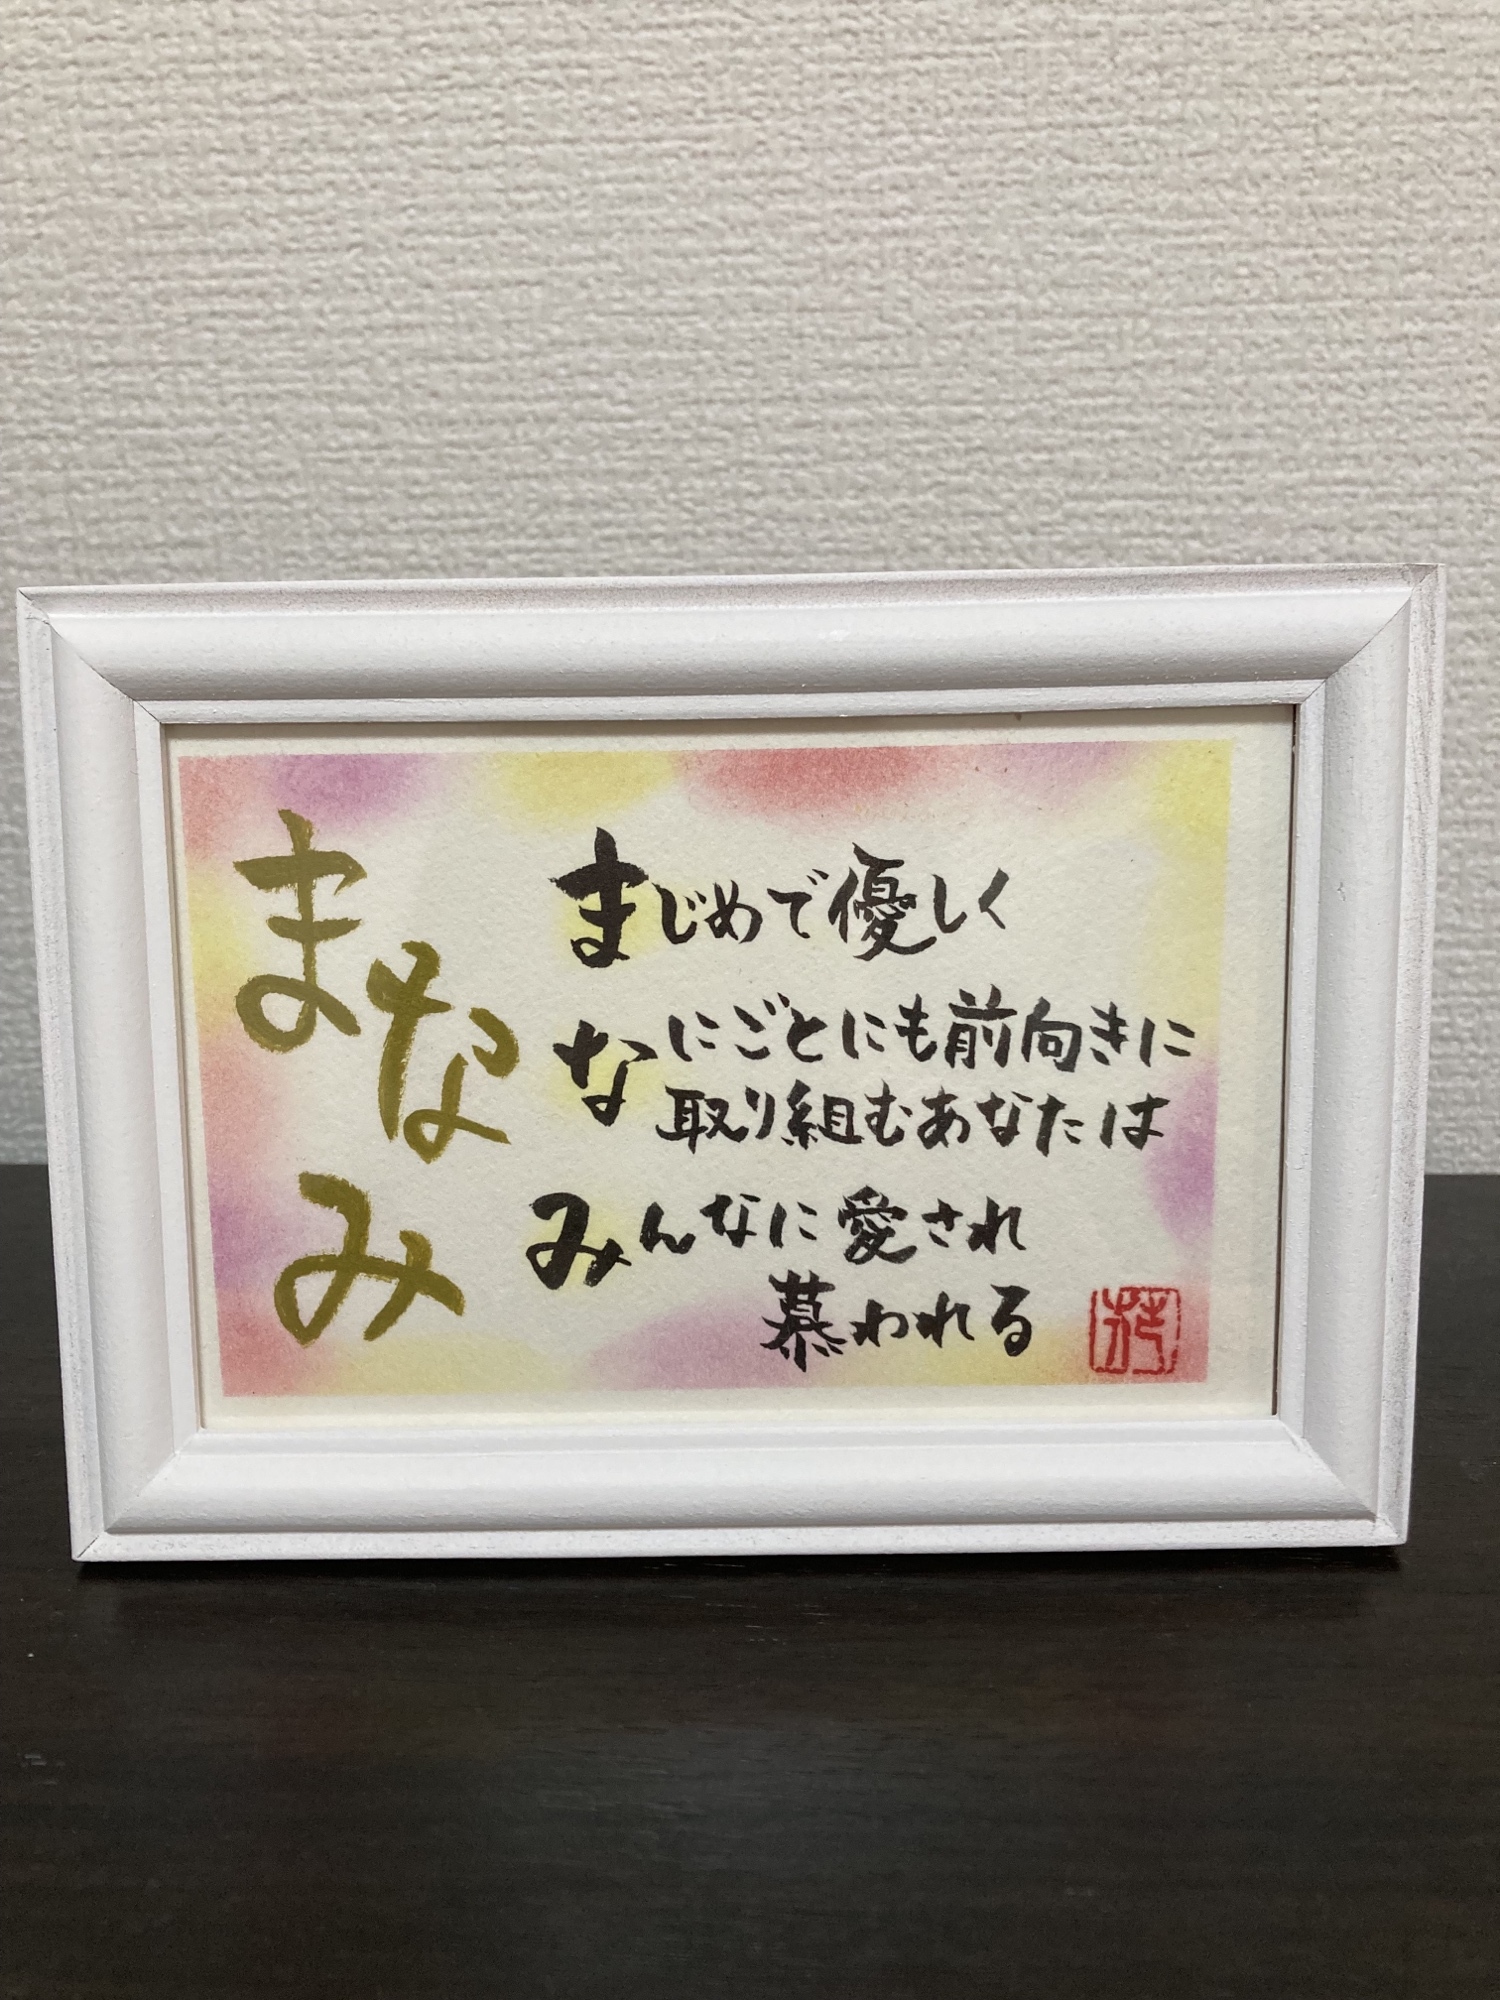 まなみ
まじめで優しく
なにごとにも前向きに
取り組むあなたは
みんなに愛され
慕われる